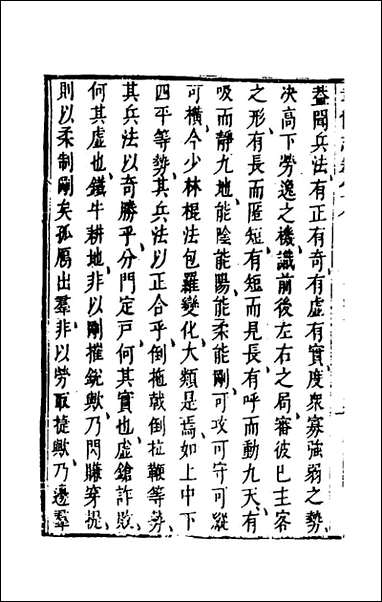 葢聞兵法有正有奇有虚有實度衆寡強弱之勢
决高下勞逸之機識前後左右之局審彼已主客
之形有長而匿短有短而見長有呼而動九天有
吸而靜九地能陰能陽能柔能剛可攻可守可縱
可橫今少林棍法包羅變化大類是焉如上中下
四平等勢其兵法以正合乎倒拖㦸倒拉鞭等勢
其兵法以奇勝乎分門定戸何其實也虚鎗詐敗
何其虚也鐵牛耕地非以剛摧銳歟乃閃賺穿提
則以柔制剛矣孤鴈出羣非以勞取捷歟乃邊羣